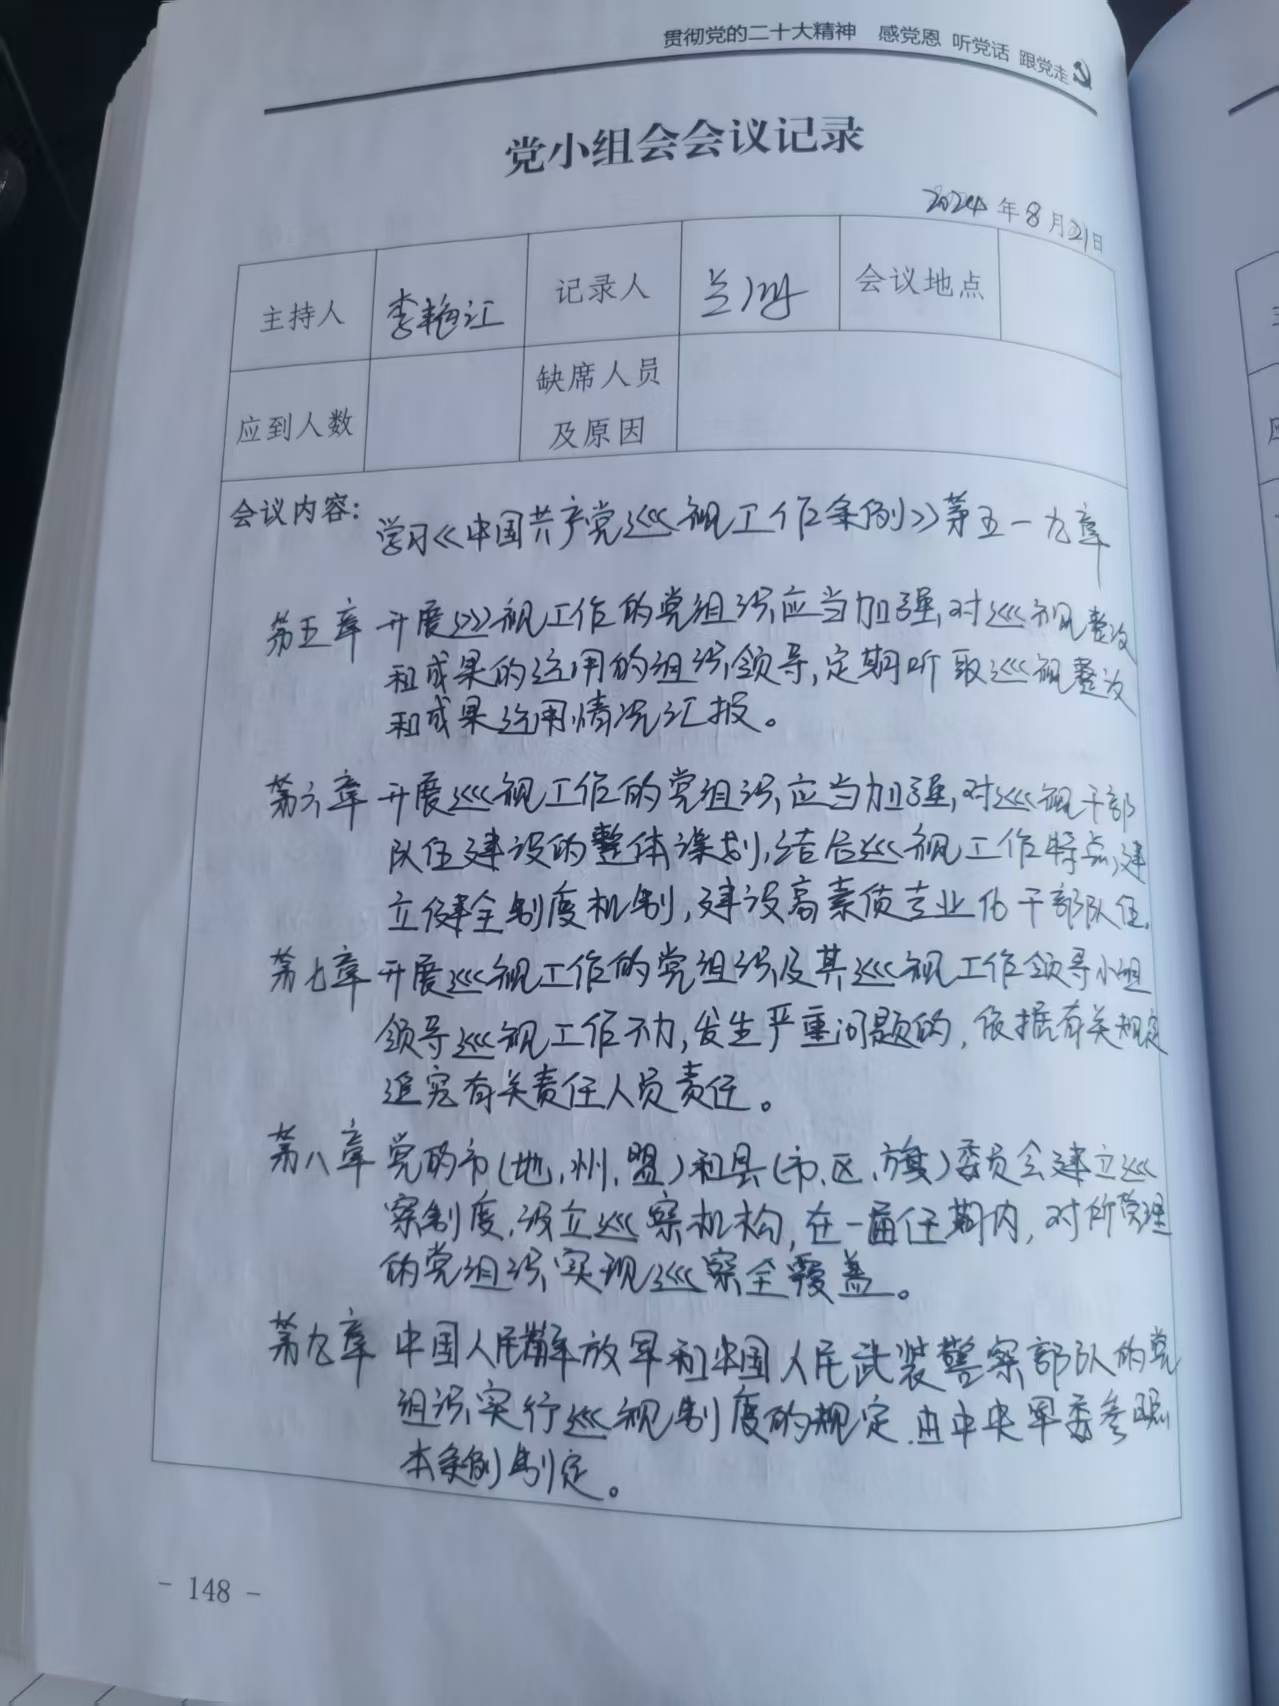 贯彻党的二十大精神 感党恩 听党话 跟党走
党小组会会议记录
2024年8月21日
主持人 李艳江 记录人 会议地点
应到人数 缺席人员及原因
会议内容:
学习《中国共产党巡视工作条例》第五一九章
第五章 开展巡视工作的党组织应当加强,对巡视整改
和成果的运用的组织领导,定期听取巡视整改
和成果运用情况汇报。
第六章 开展巡视工作的党组织应当加强,对巡视干部
队伍建设的整体谋划,结合巡视工作特点,建
立健全制度机制,建设高素质专业化干部队伍.
第七章 开展巡视工作的党组织及其巡视工作领导小组
领导巡视工作不力,发生严重问题的,依据有关规定
追究有关责任人员责任。
第八章 党的市(地、州、盟)和县(市、区、旗)委员会建立巡
察制度,设立巡察机构,在一届任期内,对所管理
的党组织实现巡察全覆盖。
第九章 中国人民解放军和中国人民武装警察部队的党
组织实行巡视制度的规定,由中央军委参照
本条例制定。
- 148 -